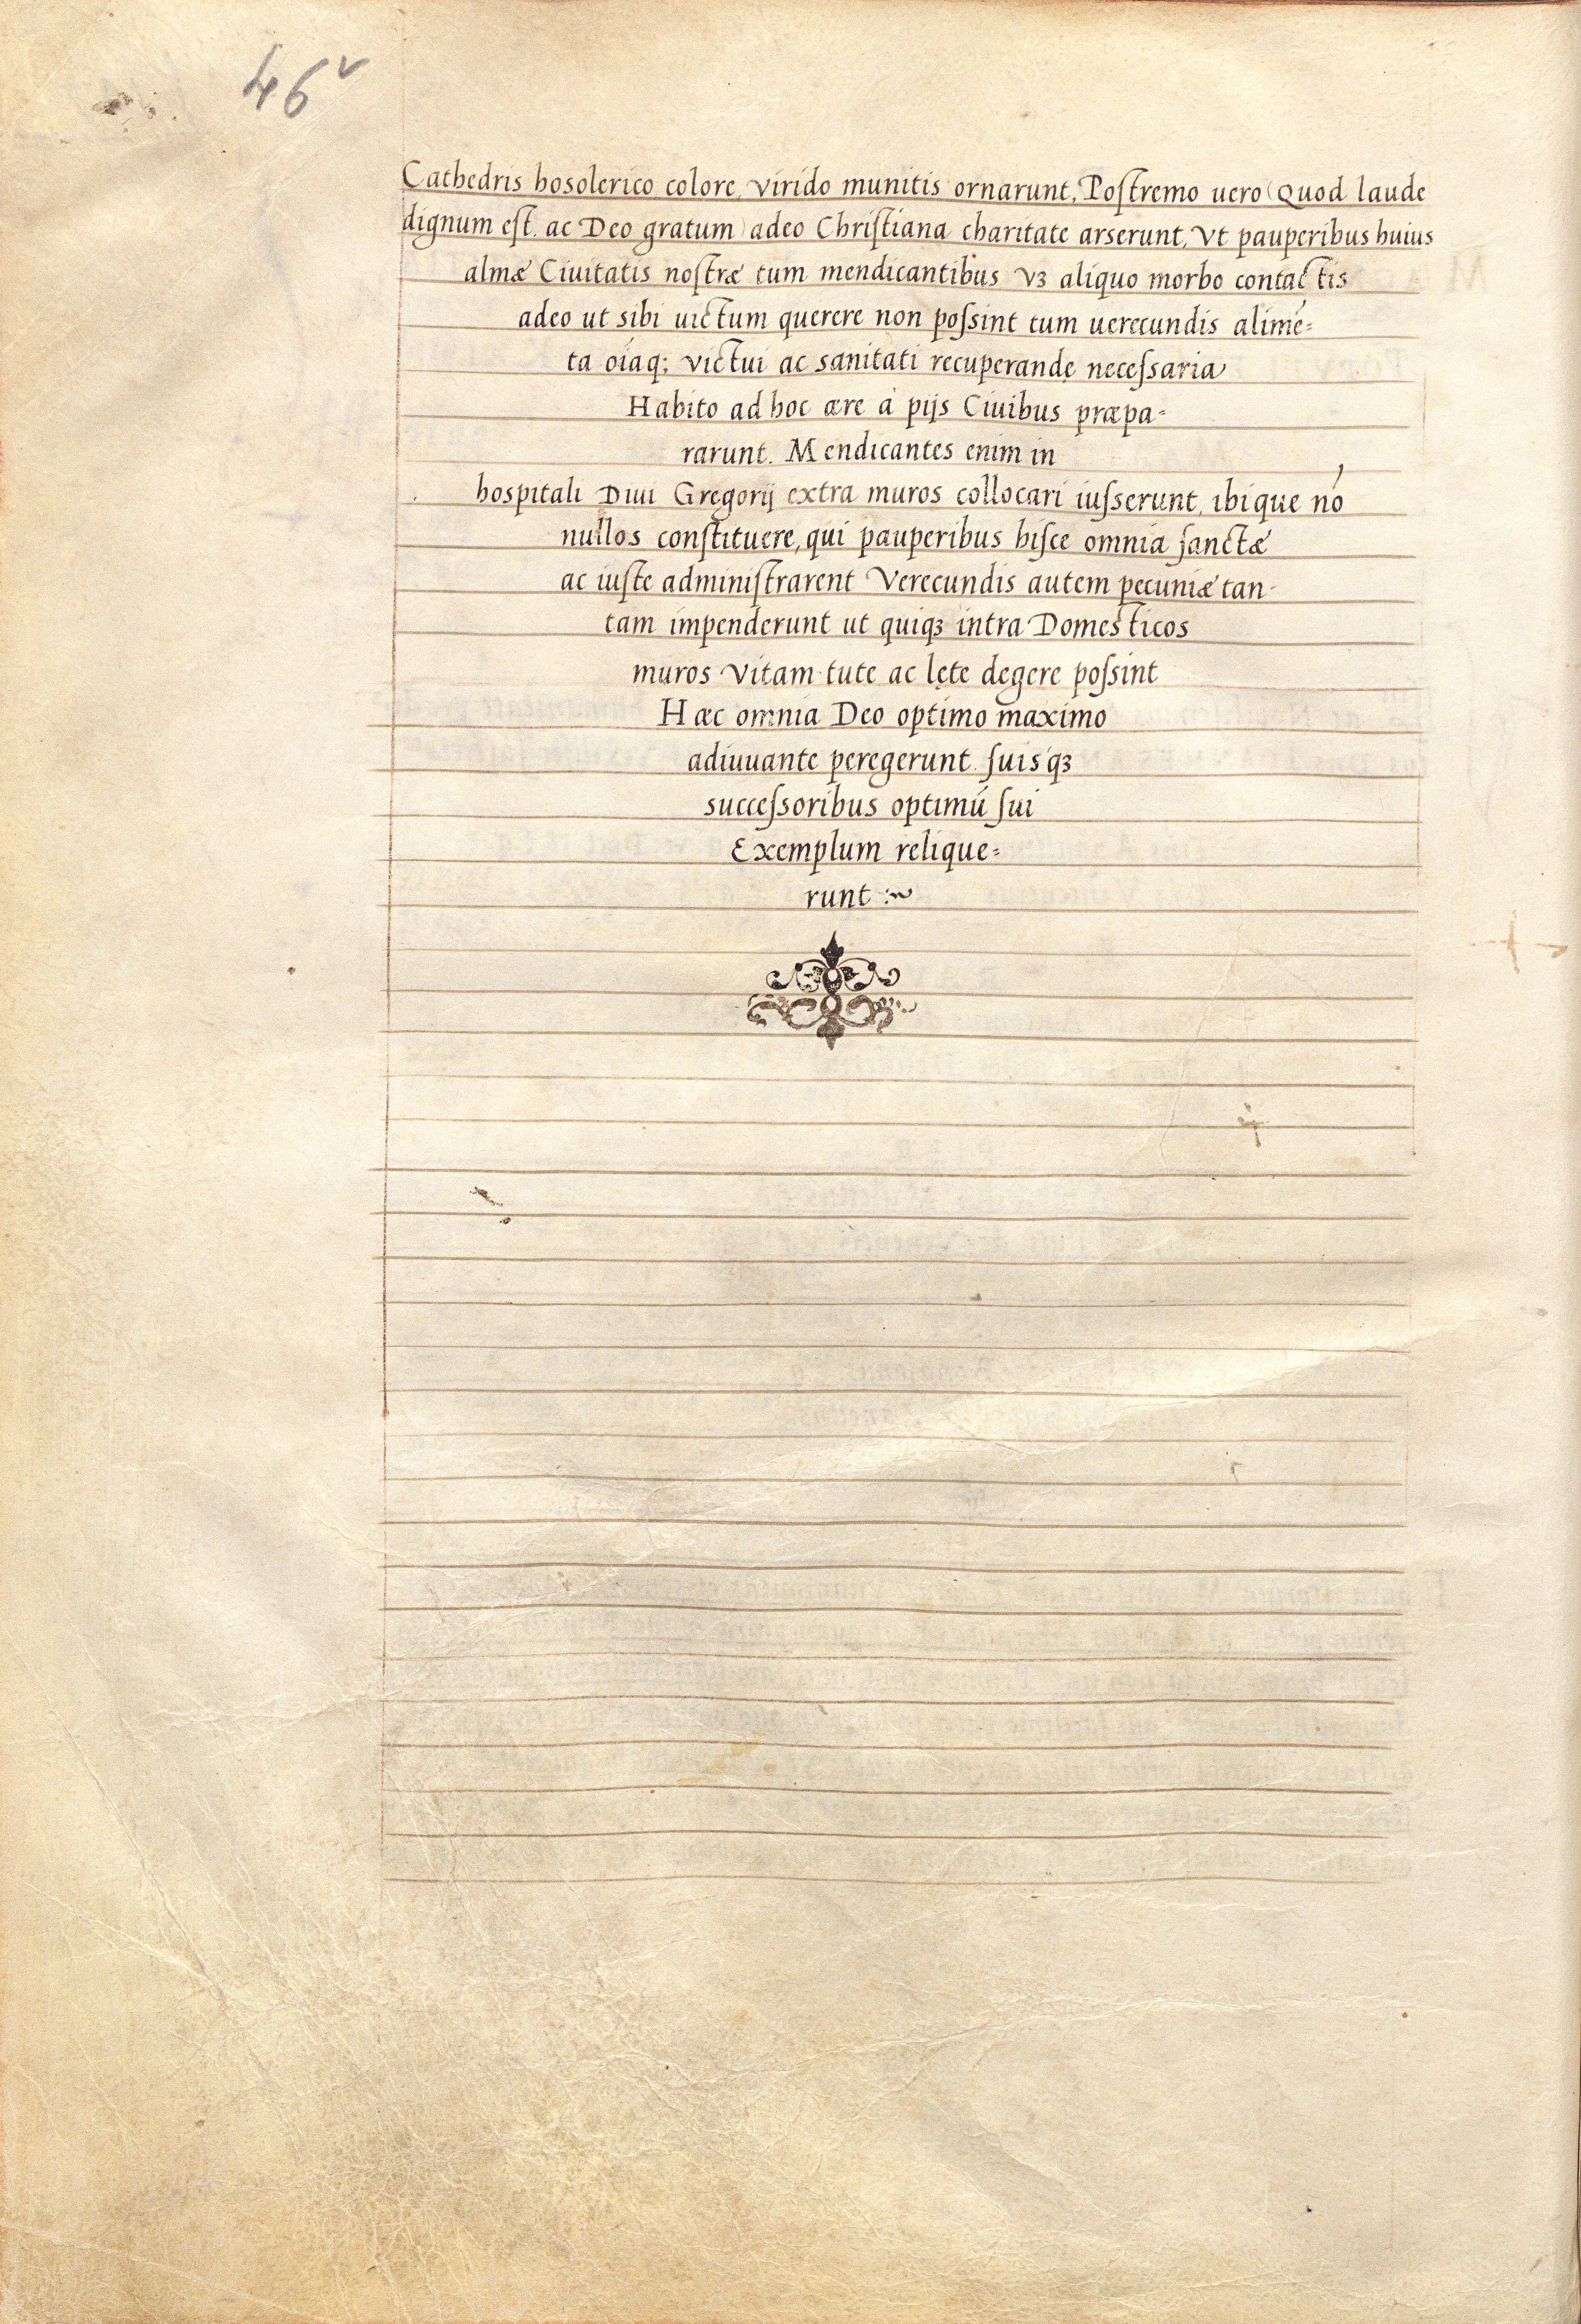 46v
Cathedris hosolerico colore, virido munitis ornarunt. Postremo uero (Quod laude
dignum est. ac Deo gratum) adeo Christiana charitate arserunt, Vt pauperibus huius
almæ Ciuitatis nostræ tum mendicantibus vꝫ aliquo morbo contactis
adeo ut sibi uictum querere non possint tum uerecundis alimé=
ta oíaq; victui ac sanitati recuperandę necessaria
Habito ad hoc ære à pijs Ciuibus præpa=
rarunt. Mendicantes enim in
hospitali Diui Gregorij extra muros collocari iusserunt, ibique nó
nullos constituere, qui pauperibus hisce omnia sanctæ
ac iuste administrarent Verecundis autem pecuniæ tan-
tam impenderunt ut quiqꝫ intra Domesticos
muros vitam tute ac lęte degere possint
Hæc omnia Deo optimo maximo
adiuuante peregerunt. suisqꝫ
successoribus optimú sui
Exemplum relique=
runt :~